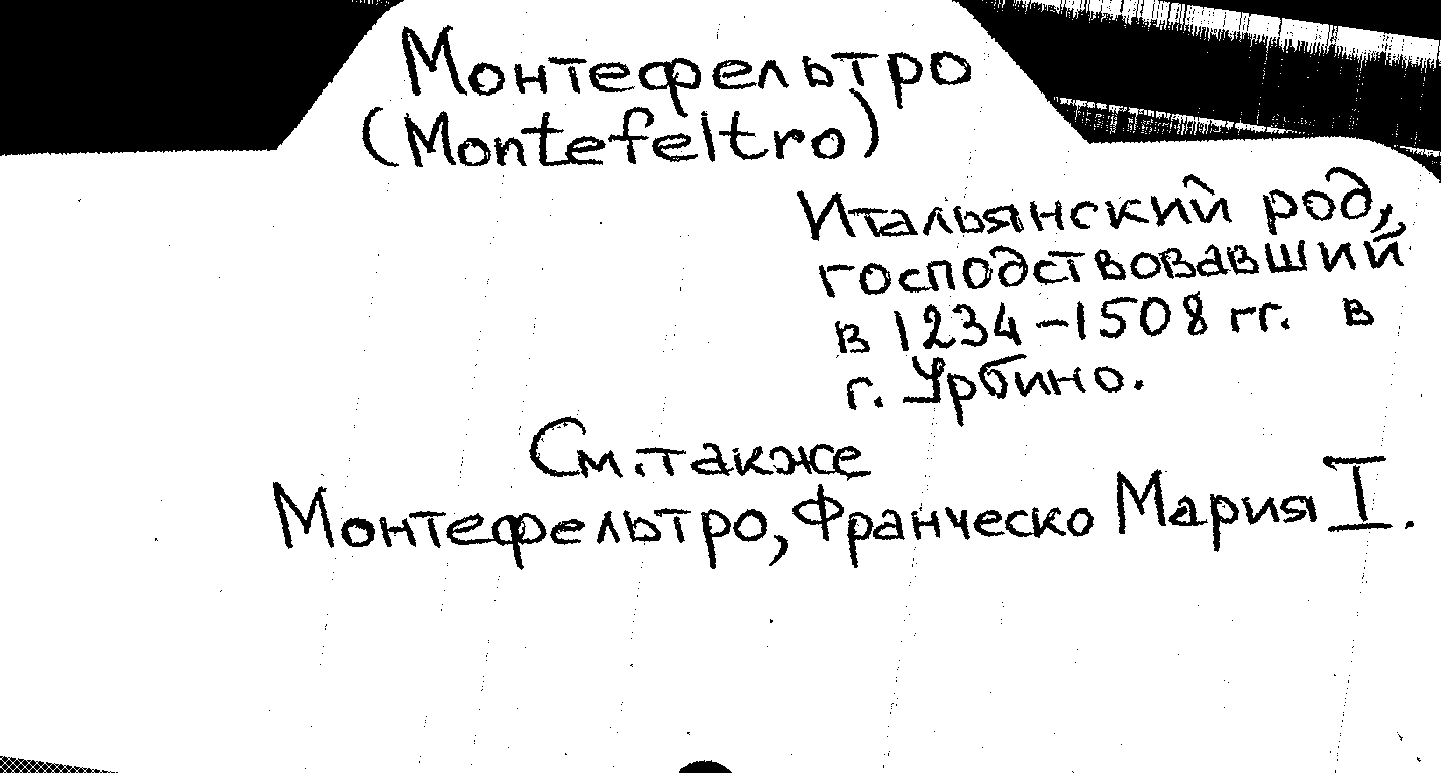 Монтефельтро
(Montefeltro)
Итальянский род,
господствовавший
в 1234-1508 гг. в
г. Урбино.
См. также
Монтефельтро, Франческо Мария I.